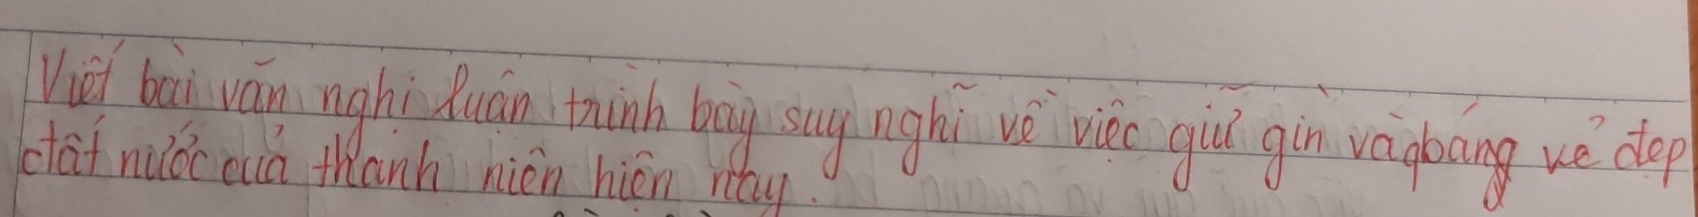 Viết bài văn nghị luận trình bày suy nghĩ về việc giữ gìn và qbáng vẻ đẹp
đất nước của thanh niên hiện nay.